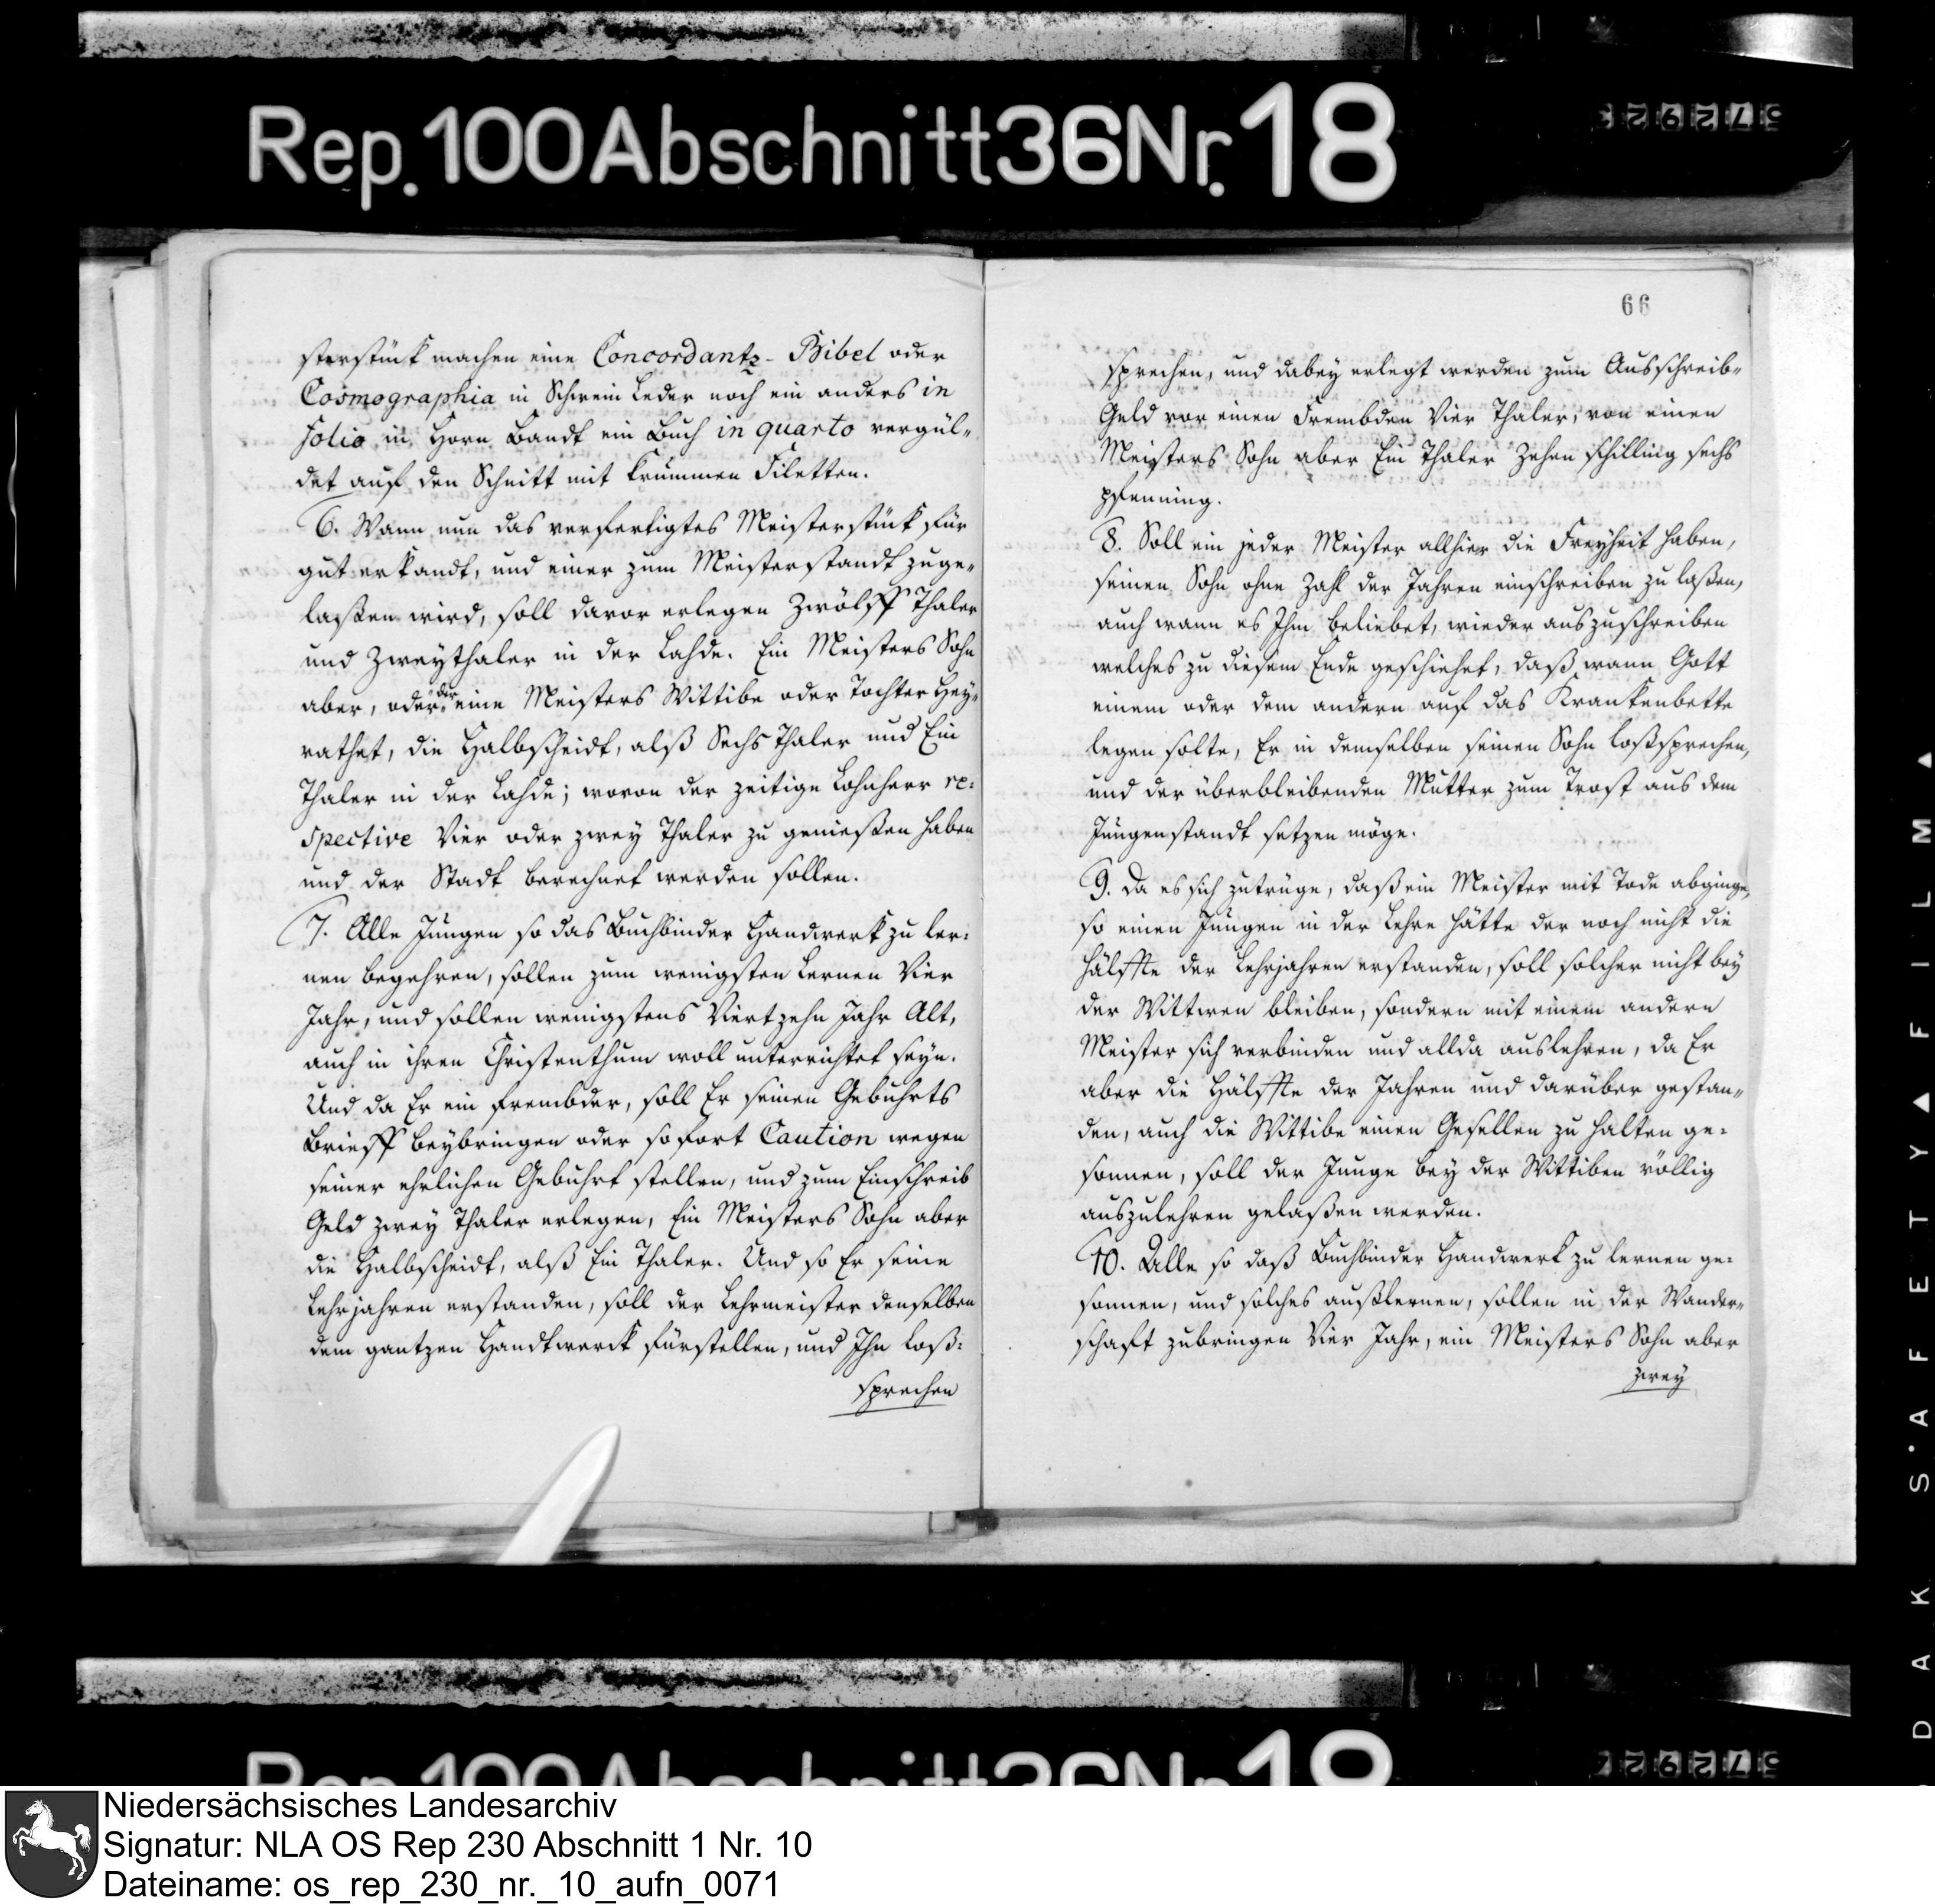 Rep. 100 Abschnitt 36 Nr. 18
sterstück machen eine Concordantz- Bibel oder
Cosmographia in Schwein Leder noch ein anders in
folio in Horn Bandt ein Buch in quarto vergül-
det auf den Schnitt mit krummen Filetten.
6. Wann nun das verfertigtes Meisterstück für
gut erkandt, und einer zum Meisterstandt zuge-
laßen wird, soll davor erlegen Zwölff Thaler
und Zweythaler in der Lahde. Ein Meisters Sohn
aber, oder der eine Meisters Wittibe oder Tochter Hey-
rathet, die Halbscheidt, alß Sechs Thaler und Ein
Thaler in der Lahde; wovon der zeitige Lohnherr re-
spective Vier oder zwey Thaler zu genießen haben
und der Stadt berechnet werden sollen.
7. Alle Jungen so das Buchbinder Handwerk zu ler-
nen begehren, sollen zum wenigsten lernen Vier
Jahr, und sollen wenigstens Viertzehn Jahr Alt,
auch in ihren Christenthum woll unterrichtet seyn.
Und da Er ein frembder, soll Er seinen Gebuhrts
Brieff beybringen oder sofort Caution wegen
seiner ehrlichen Gebuhrt stellen, und zum Einschreib
Geld zwey Thaler erlegen, Ein Meisters Sohn aber
die Halbscheidt, alß Ein Thaler. Und so Er seine
Lehrjahren erstanden, soll der Lehrmeister denselben
dem gantzen Handtwerck fürstellen, und Ihn loß-
sprechen
66
sprechen, und dabey erlegt werden zum Ausschreib-
Geld vor einen Frembden Vier Thaler, von einen
Meisters Sohn aber Ein Thaler Zehen schilling sechs
pfenning.
8. Soll ein jeder Meister allhier die Freyheit haben,
seinen Sohn ohne Zahl der Jahren einschreiben zu laßen,
auch wann es Ihm beliebet, wieder auszuschreiben
welches zu diesem Ende geschiehet, daß wann Gott
einem oder dem andern auf das Krankenbette
legen solte, Er in demselben seinen Sohn loßsprechen,
und der überbleibenden Mutter zum Trost aus dem
Jungenstandt setzen möge.
9. Da es sich zutrüge, daß ein Meister mit Tode abginge,
so einen Jungen in der Lehre hätte der noch nicht die
Hälffte der Lehrjahren erstanden, soll solcher nicht bey
der Wittwen bleiben, sondern mit einem andern
Meister sich verbinden und allda auslehren, da Er
aber die Hälffte der Jahren und darüber gestan-
den, auch die Wittibe einen Gesellen zu halten ge-
sonnen, soll der Junge bey der Wittiben völlig
auszulehren gelaßen werden.
10. Alle so daß Buchbinder Handwerk zu lernen ge-
sonnen, und solches außlernen, sollen in der Wander-
schaft zubringen Vier Jahr, ein Meisters Sohn aber
zwey
S'AFETY▲FILM▲
Niedersächsisches Landesarchiv
Signatur: NLA OS Rep 230 Abschnitt 1 Nr. 10
Dateiname: os_rep_230_nr._10_aufn_0071